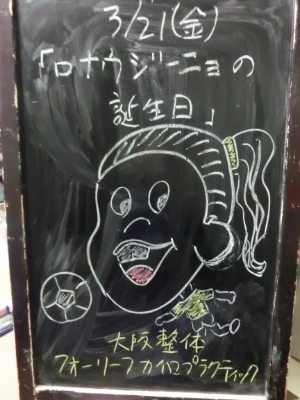 3/21(金)
「ロナウジーニョの
誕生日」
大阪整体
フォーリーフカイロプラクティック